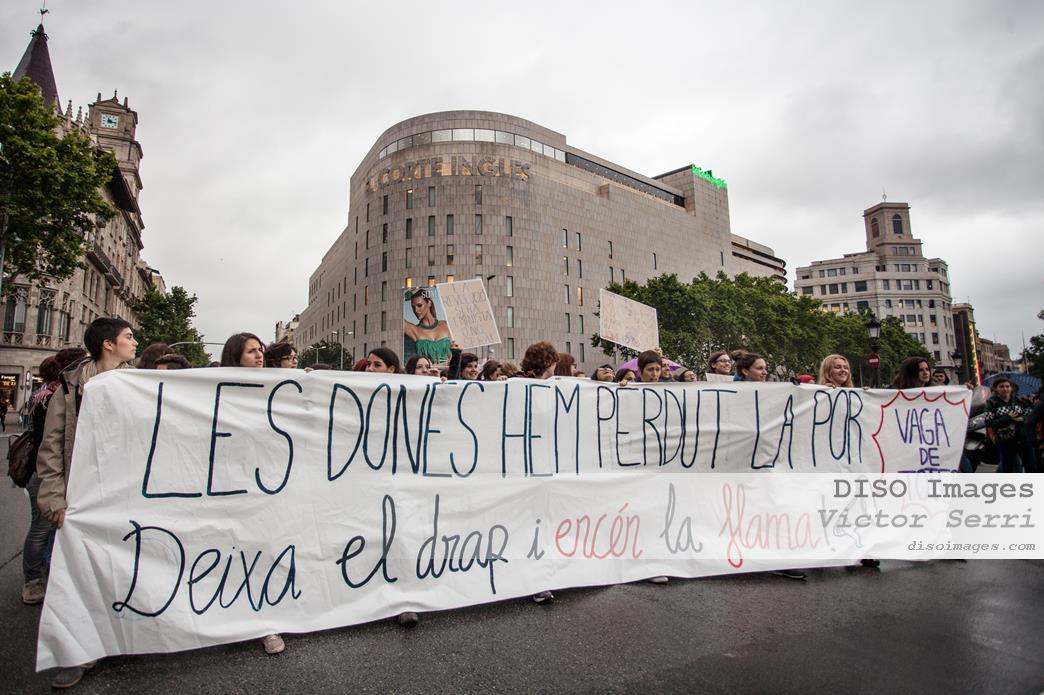 EL CORTE INGLES
LES DONES HEM PERDUT LA POR
VAGA
DE
Deixa el drap i encén la flama!
DISO Images
Victor Serri
disoimages.com